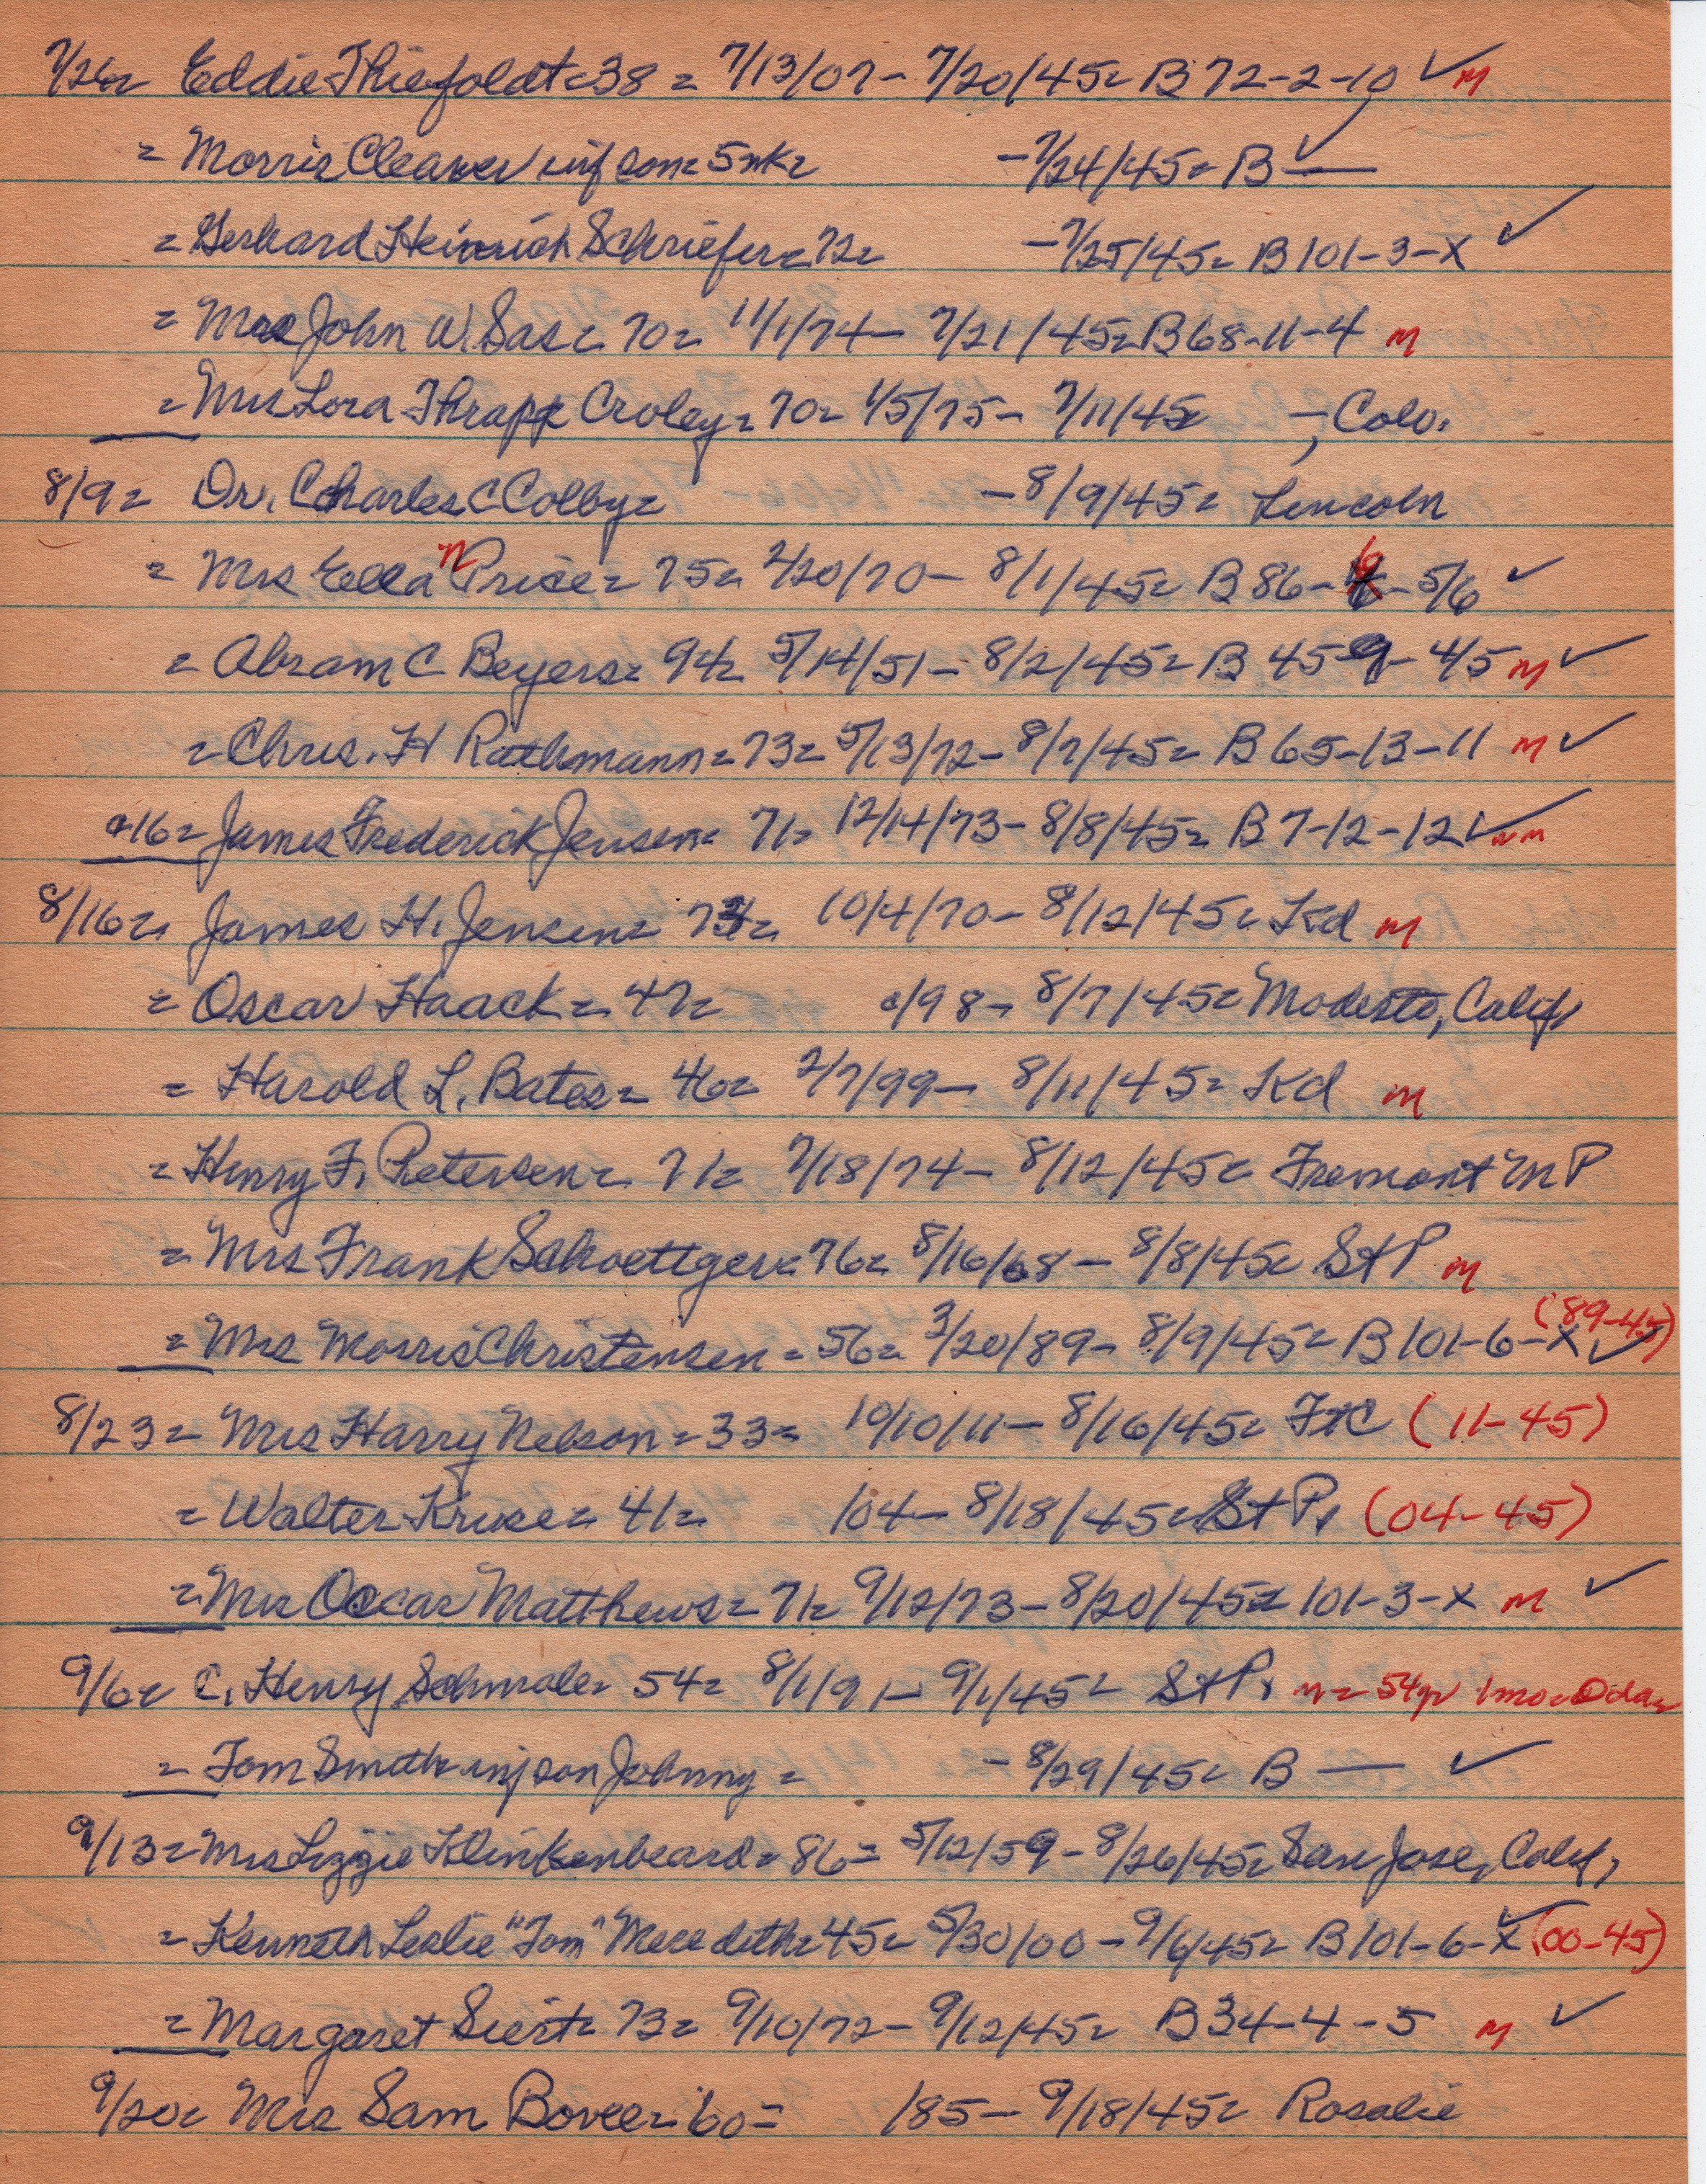 7/26= Eddie Thiefoldt=38= 7/13/07- 7/20/45= B 72-2-10 ✓ m
= Morris Cleaver inf son= 5 wk= -7/24/45= B — ✓
= Gerhard Heinrich Schriefer= 72= -7/25/45= B 101-3-X ✓
= Mrs John W. Sas= 70= 11/1/74- 7/21/45= B 68-11-4 m
= Mrs Lora Thrapp Croley= 70= 1/5/75- 7/11/45 -, Colo.
8/9= Dr. Charles C Colby= -8/9/45= Lincoln
= Mrs Ella n Price= 75= 2/20/70- 8/1/45= B 86-6-5/6 ✓
= Abram C Beyers= 94= 5/14/51- 8/2/45= B 45-9-4/5 m ✓
= Chris. H Rathmann= 73= 5/13/72- 8/7/45= B 65-13-11 m ✓
+16= James Frederick Jensen= 71= 12/14/73- 8/8/45= B 7-12-12 ✓ m
8/16= James H. Jensen= 74= 10/4/70- 8/12/45= Kd m
= Oscar Haack= 47= c/98- 8/7/45= Modesto, Calif,
= Harold L. Bates= 46= 2/7/99- 8/11/45= Kd m
= Henry F. Petersen= 71= 7/18/74- 8/12/45= Fremont M P
= Mrs Frank Schoettger= 76= 8/16/68- 8/8/45= St P m
= Mrs Morris Christensen= 56= 3/20/89- 8/9/45= B 101-6-X ✓ (89-45)
8/23= Mrs Harry Nelson= 33= 10/10/11- 8/16/45= FtC (11-45)
= Walter Kruse= 41= /04- 8/18/45= St P. (04-45)
= Mrs Oscar Matthews= 71= 9/12/73- 8/20/45= 101-3-X m ✓
9/6= C. Henry Schmale= 54= 8/1/91- 9/1/45= St P. m= 54yr 1mo= 0da=
= Tom Smith inf son Johnny= -8/29/45= B — ✓
9/13= Mrs Lizzie Klinkenbeard= 86= 5/12/59- 8/26/45= San Jose, Calif,
= Kenneth Leslie "Tom" Meredith= 45= 5/30/00- 9/6/45= B 101-6-X ✓ (00-45)
= Margaret Siert= 73= 9/10/72- 9/12/45= B 34-4-5 m ✓
9/20= Mrs Sam Bovee= 60= /85- 9/18/45= Rosalie